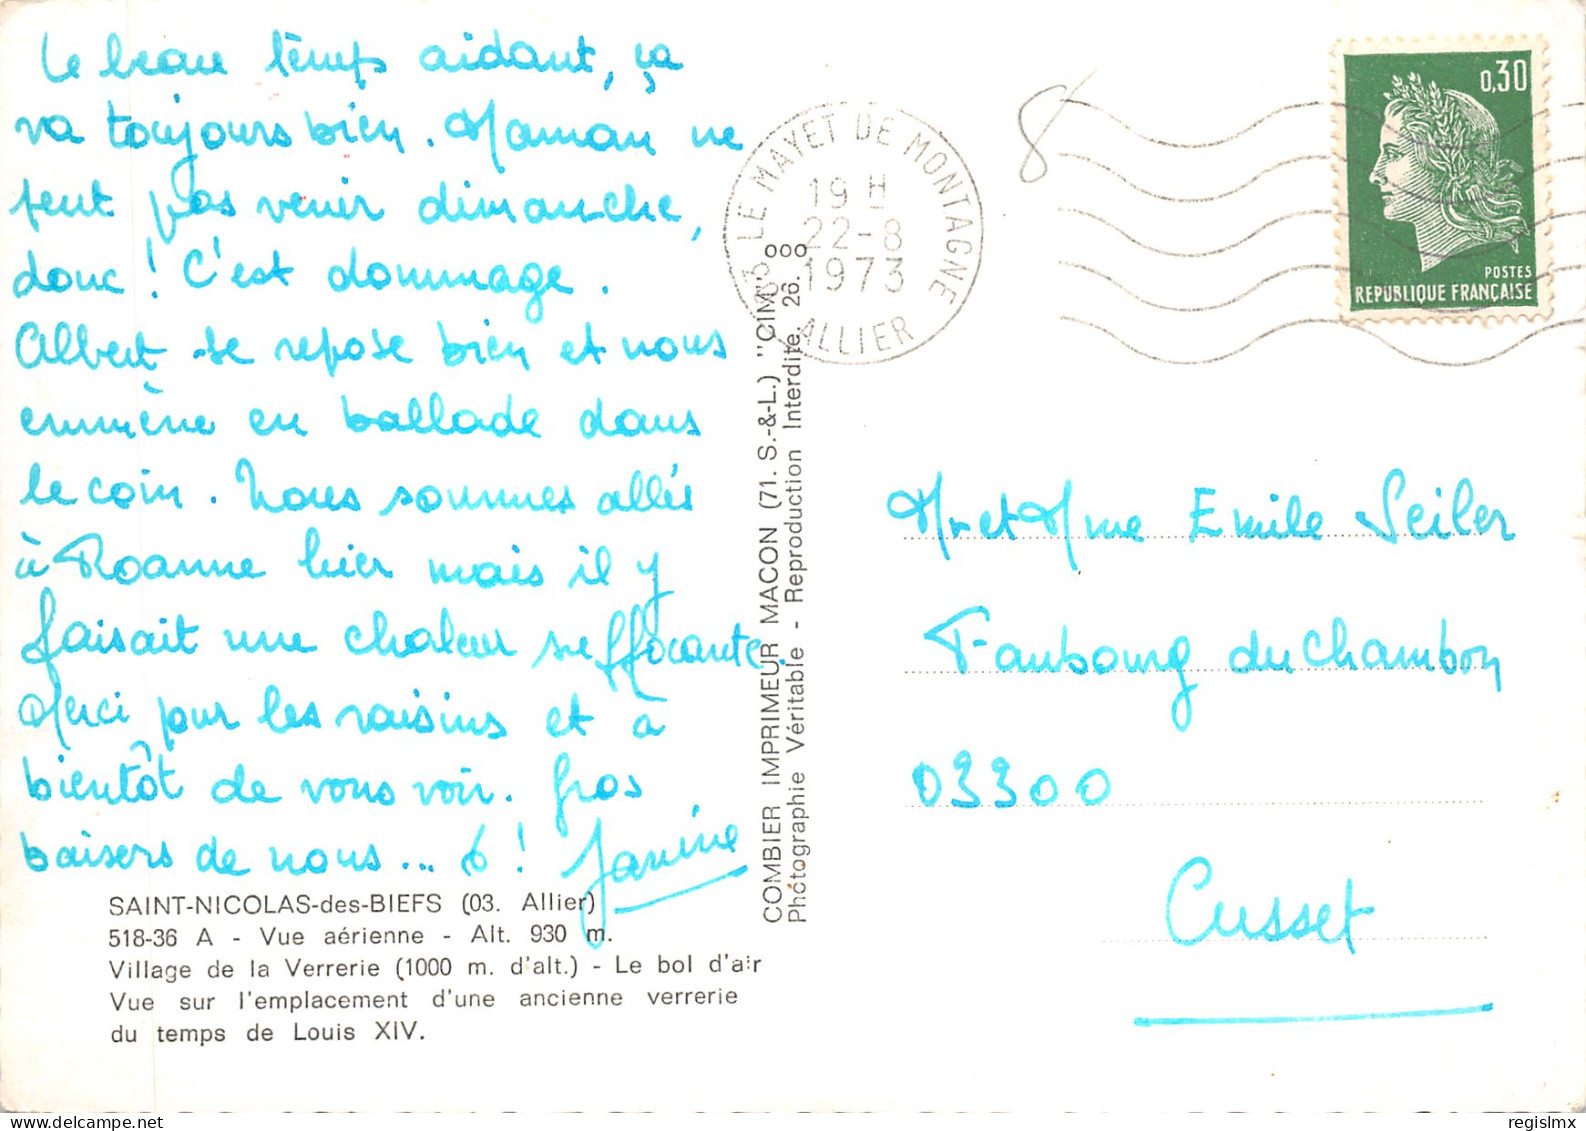 Le beau temps aidant, ça
va toujours bien. Maman ne
peut pas venir dimanche,
donc ! C'est dommage.
Albert se repose bien et nous
emmène en ballade dans
le coin. Nous sommes allés
à Roanne hier mais il y
faisait une chaleur suffocante.
Merci pour les raisins et à
bientôt de vous voir. Gros
baisers de nous... 6 ! Janine
SAINT-NICOLAS-des-BIEFS (03. Allier)
518-36 A - Vue aérienne - Alt. 930 m.
Village de la Verrerie (1000 m. d'alt.) - Le bol d'air
Vue sur l'emplacement d'une ancienne verrerie
du temps de Louis XIV.
COMBIER IMPRIMEUR MACON (71. S.-&-L.) "CIM"
Photographie Véritable - Reproduction Interdite. 26. 000
03 LE MAYET DE MONTAGNE
19 H
22-8
1973
ALLIER
8
0,30
POSTES
REPUBLIQUE FRANÇAISE
Mr et Mme Emile Seiler
Faubourg du Chambon
03300
Cusset
www.delcampe.net
regislmx